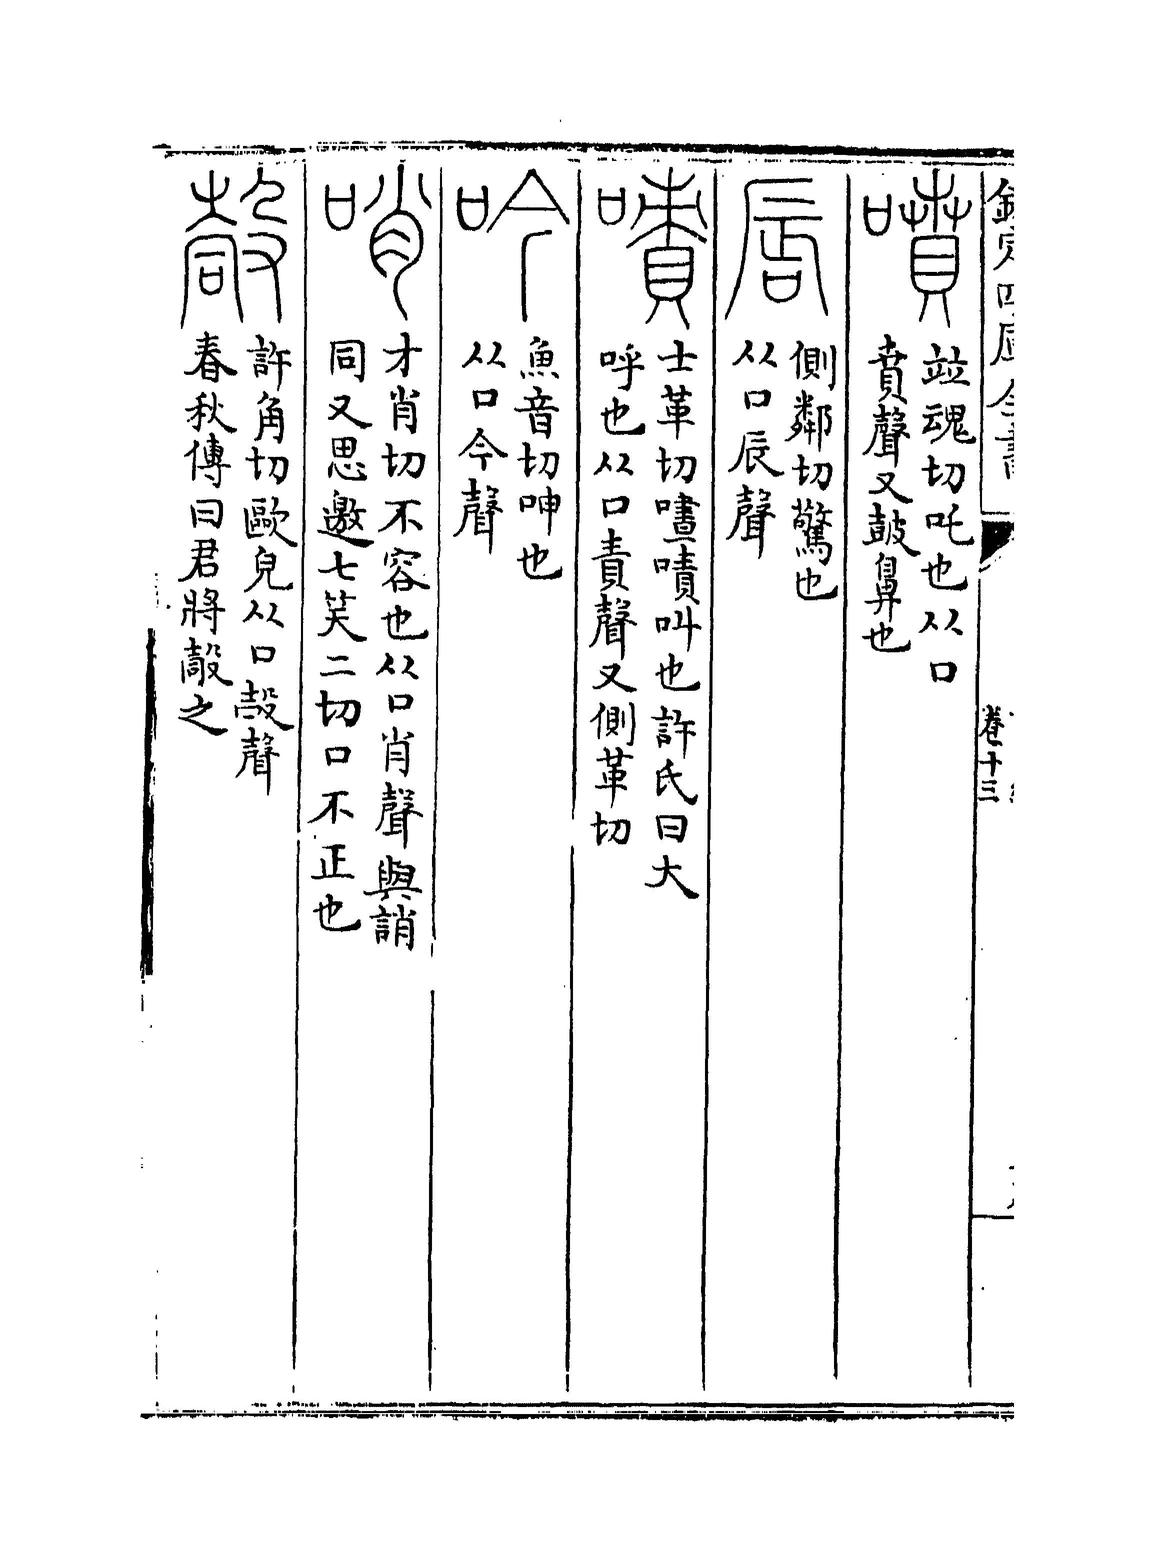 欽定四庫全書
卷十三
噴
竝魂切吒也从口
賁聲又鼓鼻也
唇
側鄰切驚也
从口辰聲
嘖
士革切嚍嘖叫也許氏曰大
呼也从口責聲又側革切
吟
魚音切呻也
从口今聲
哨
才肖切不容也从口肖聲與誚
同又思邀七笑二切口不正也
㱿
許角切歐皃从口㱿聲
春秋傳曰君將㱿之